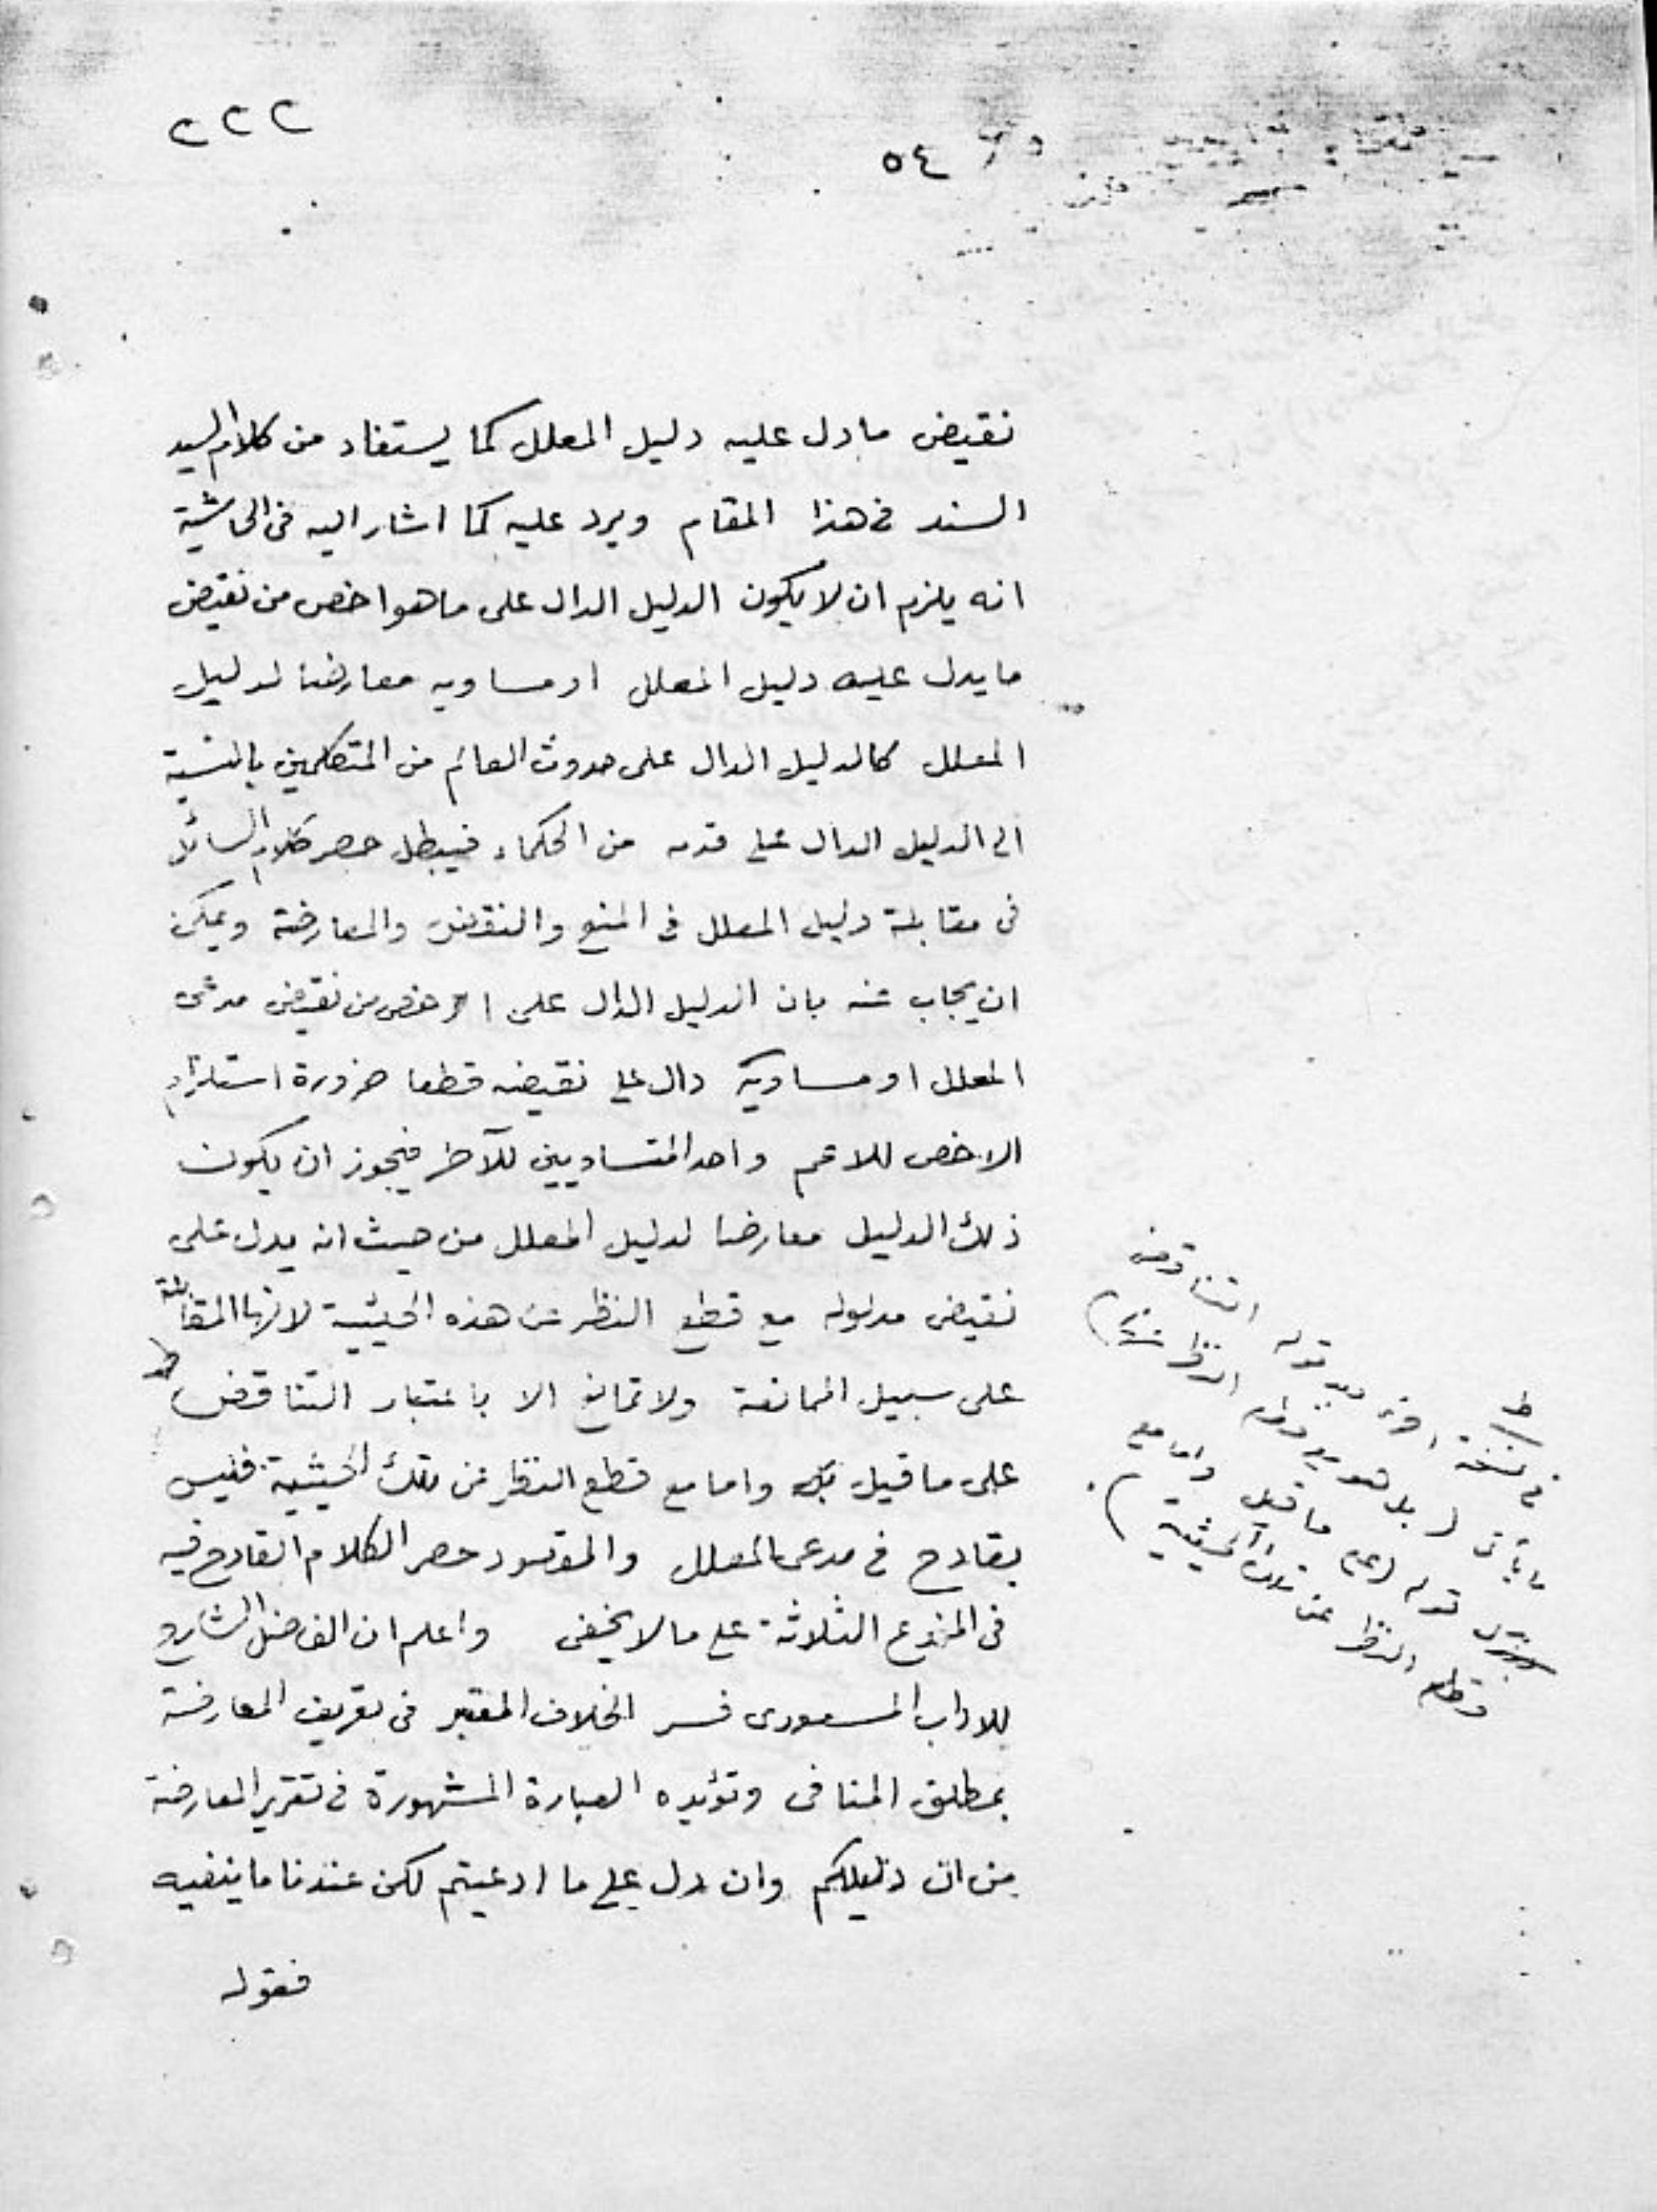 ٢٢٢
٥٤
نقيض مادل عليه دليل المعلل كما يستفاد من كلام السيد
السند فى هذا المقام ويرد عليه كما اشار اليه فى الحاشية
انه يلزم ان لا يكون الدليل الدال على ما هو اخص من نقيض
ما يدل عليه دليل المعلل او مساويه معارضا لدليل
المعلل كالدليل الدال على حدوث العالم من المتكلمين بالنسبة
الى الدليل الدال على قدمه من الحكماء فيبطل حصر كلام السائل
فى مقابلة دليل المعلل فى المنع والنقض والمعارضة ويمكن
ان يجاب عنه بان الدليل الدال على اخص من نقيض مدعى
المعلل او مساويه دال على نقيضه قطعا ضرورة استلزام
الاخص للاعم واحد المتساويين للآخر فيجوز ان يكون
ذلك الدليل معارضا لدليل المعلل من حيث انه يدل على
نقيض مدلوله مع قطع النظر عن هذه الحيثية لانها المقابلة
على سبيل الممانعة ولا تمانع الا باعتبار التناقض ط
على ما قيل واما مع قطع النظر عن تلك الحيثية فليس
بقادح فى مدعى المعلل والمقصود حصر الكلام القادح فيه
فى المنوع الثلاثة على ما لا يخفى واعلم ان الفاضل الشارح
للاداب المسعودى فسر الخلاف المعتبر فى تعريف المعارضة
بمطلق المنافى وتؤيده العبارة المشهورة فى تقرير المعارضة
من ان دليلكم وان دل على ما ادعيتم لكن عندنا ما ينفيه
فقوله
ط
فى نسخة اخرى بعد قوله التناقض
ما يأتى ( بلا
قوله (على ما قيل واما مع
وقطع النظر عن تلك الحيثية ) .